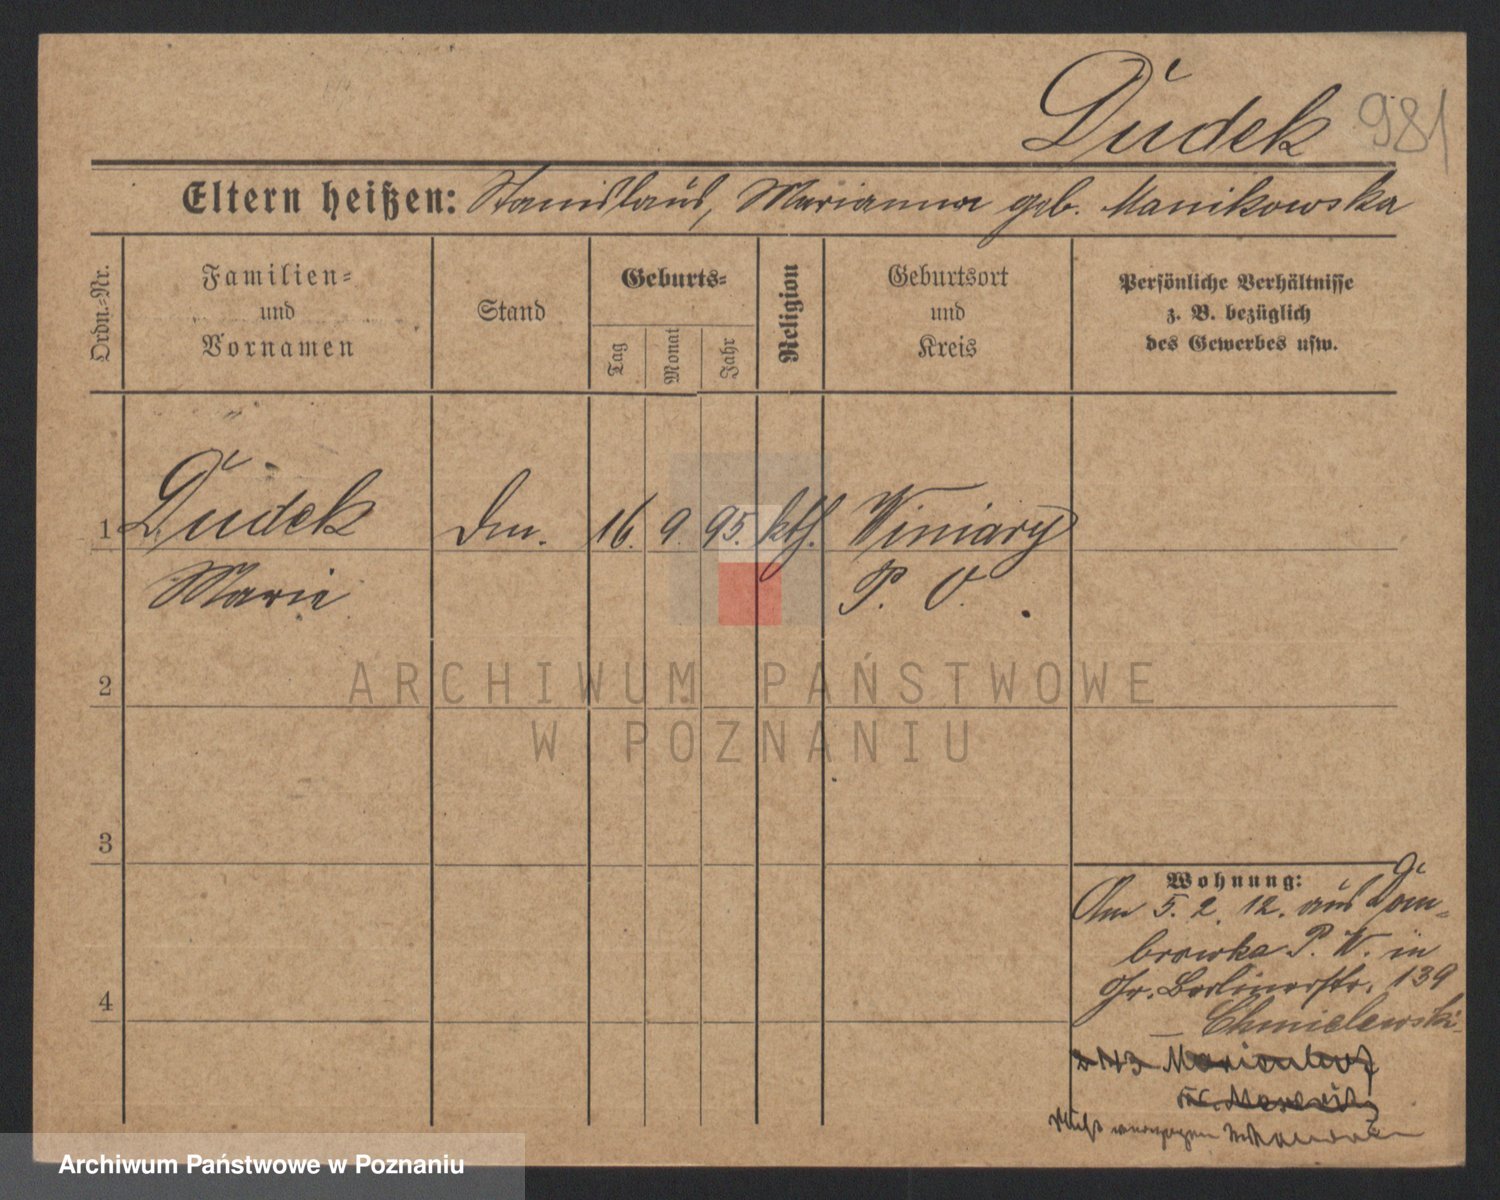 Dudek 981
Eltern heißen: Stanislaus, Marianna geb. Manikowska
Ordn.-Nr.
Familien-
und
Vornamen
Stand
Geburts-
Tag
Monat
Jahr
Religion
Geburtsort
und
Kreis
Persönliche Verhältnisse
z. B. bezüglich
des Gewerbes usw.
1 Dudek 16. 9. 95. kth. Winiary
Marie P. O.
2
3
4
Wohnung:
Am 5. 2. 12. aus Dom-
browka P. W. in
Gr. Berlinerstr. 139
– Chmielewski
ARCHIWUM PAŃSTWOWE
W POZNANIU
Archiwum Państwowe w Poznaniu